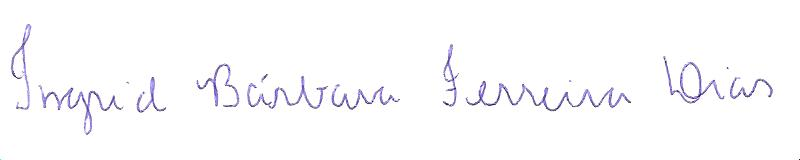 Ingrid Bárbara Ferreira Dias